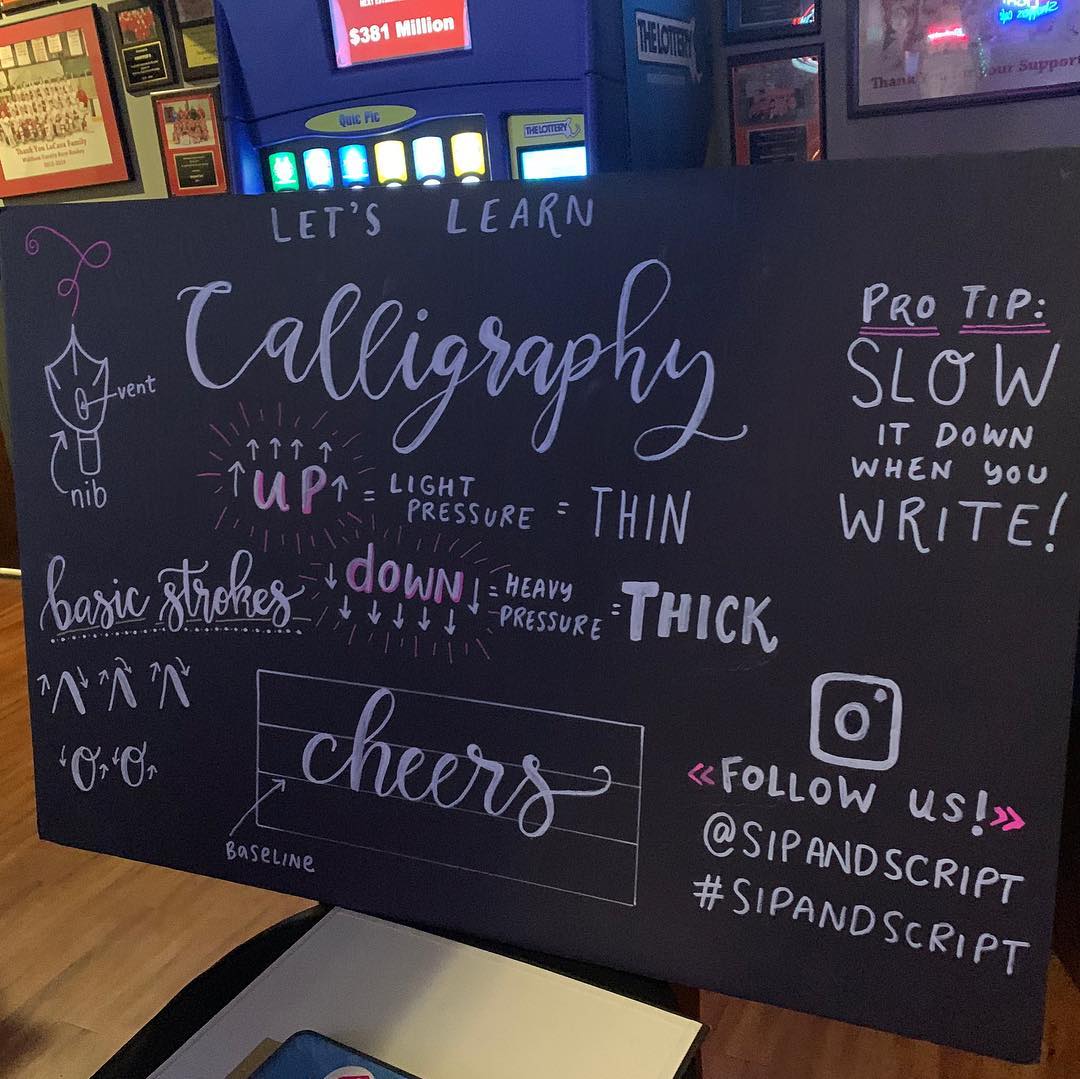 NEXT ESTIMATED
$381 Million
THE LOTTERY
Quic Pic
THE LOTTERY
Thank You LaCava Family
Thank You For Your Support
LET'S LEARN
Calligraphy
vent
nib
UP = LIGHT PRESSURE = THIN
basic strokes
down = HEAVY PRESSURE = THICK
cheers
BASELINE
PRO TIP:
SLOW
IT DOWN
WHEN YOU
WRITE!
«FOLLOW US!»
@SIPANDSCRIPT
#SIPANDSCRIPT